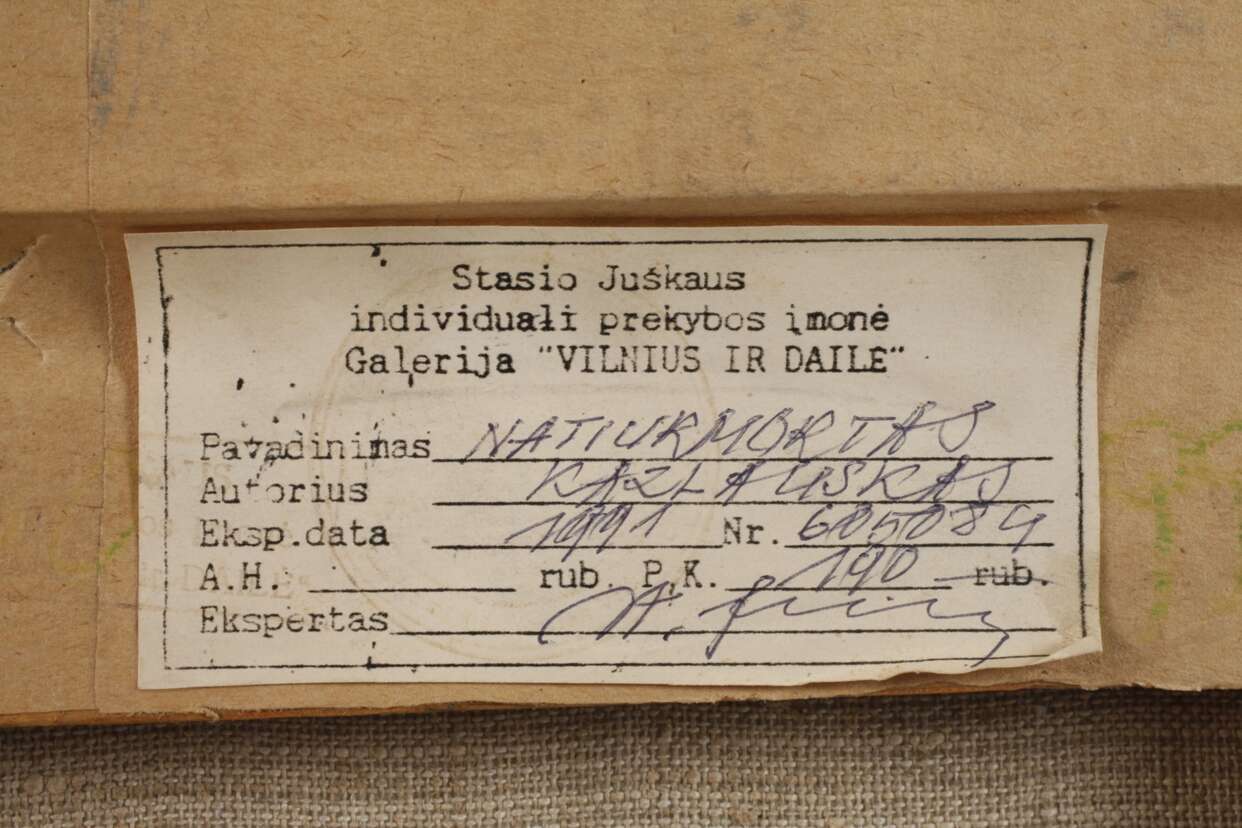 Stasio Juškaus
individuali prekybos įmonė
Galerija "VILNIUS IR DAILĖ"
Pavadinimas NATIURMORTAS
Autorius KAZLAUSKAS
Eksp.data 1991 Nr. 605084
A.H. rub. P.K. 190 rub.
Ekspertas